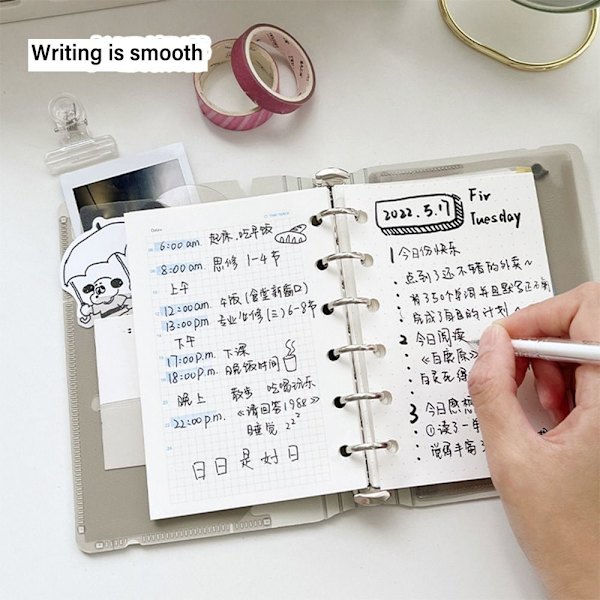 Writing is smooth
6:00 am 起床.吃早饭
8:00 am 思修 1-4节
上午
12:00 am 午饭 (食堂新窗口)
13:00 pm 专业必修 (三) 6-8节
下午
17:00 p.m. 下课
18:00 p.m. 晚饭时间
晚上 散步 吃喝玩乐
22:00 p.m. 《请回答1988》
睡觉 zzz
日日是好日
2022.5.17
Fir
Tuesday
1 今日份快乐
点到了还不错的外卖~
背了50个单词并且默写
完成了自己的计划
2 今日阅读
3 今日感想
① 读了一